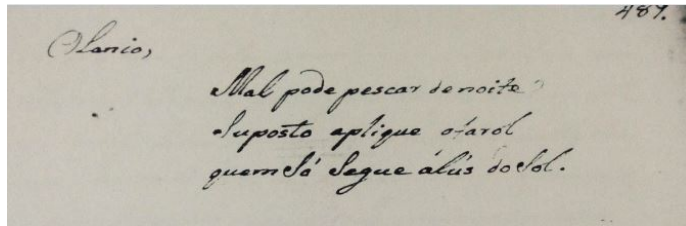 487.
Olanio,
Mal pode pescar de noite
Suposto aplique o farol
quem Só Segue á lús do Sol.